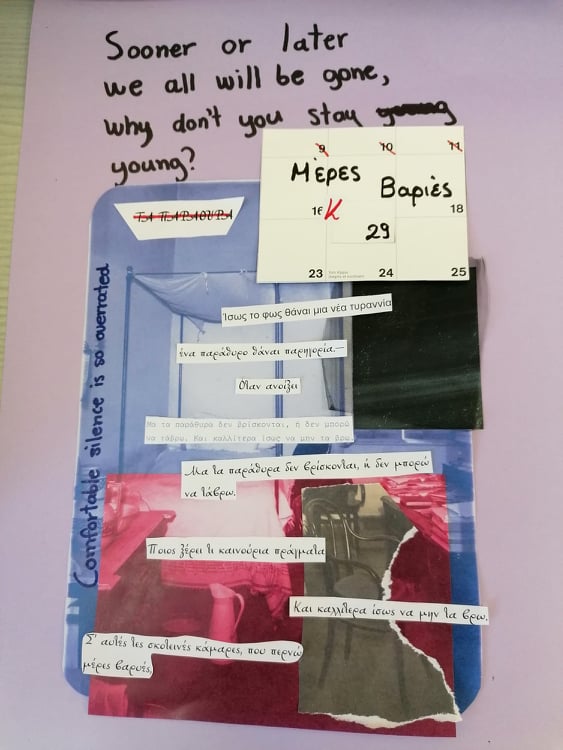 Sooner or later
we all will be gone,
why don't you stay
young?
9 10 11
Μέρες Βαριές
K 18
29
23 24 25
ΤΑ ΠΑΡΑΘΥΡΑ
Comfortable silence is so overrated
Ίσως το φως θάναι μια νέα τυραννία
ένα παράθυρο θάναι παρηγορία.—
Οταν ανοίξει
Μα τα παράθυρα δεν βρίσκονται, ή δεν μπορώ
να τάβρω. Και καλλίτερα ίσως να μην τα βρω.
Μα τα παράθυρα δεν βρίσκονται, ή δεν μπορώ
να τάβρω.
Ποιος ξέρει τι καινούρια πράγματα
Και καλλίτερα ίσως να μην τα βρω.
Σ' αυτές τες σκοτεινές κάμαρες, που περνώ
μέρες βαρυές,